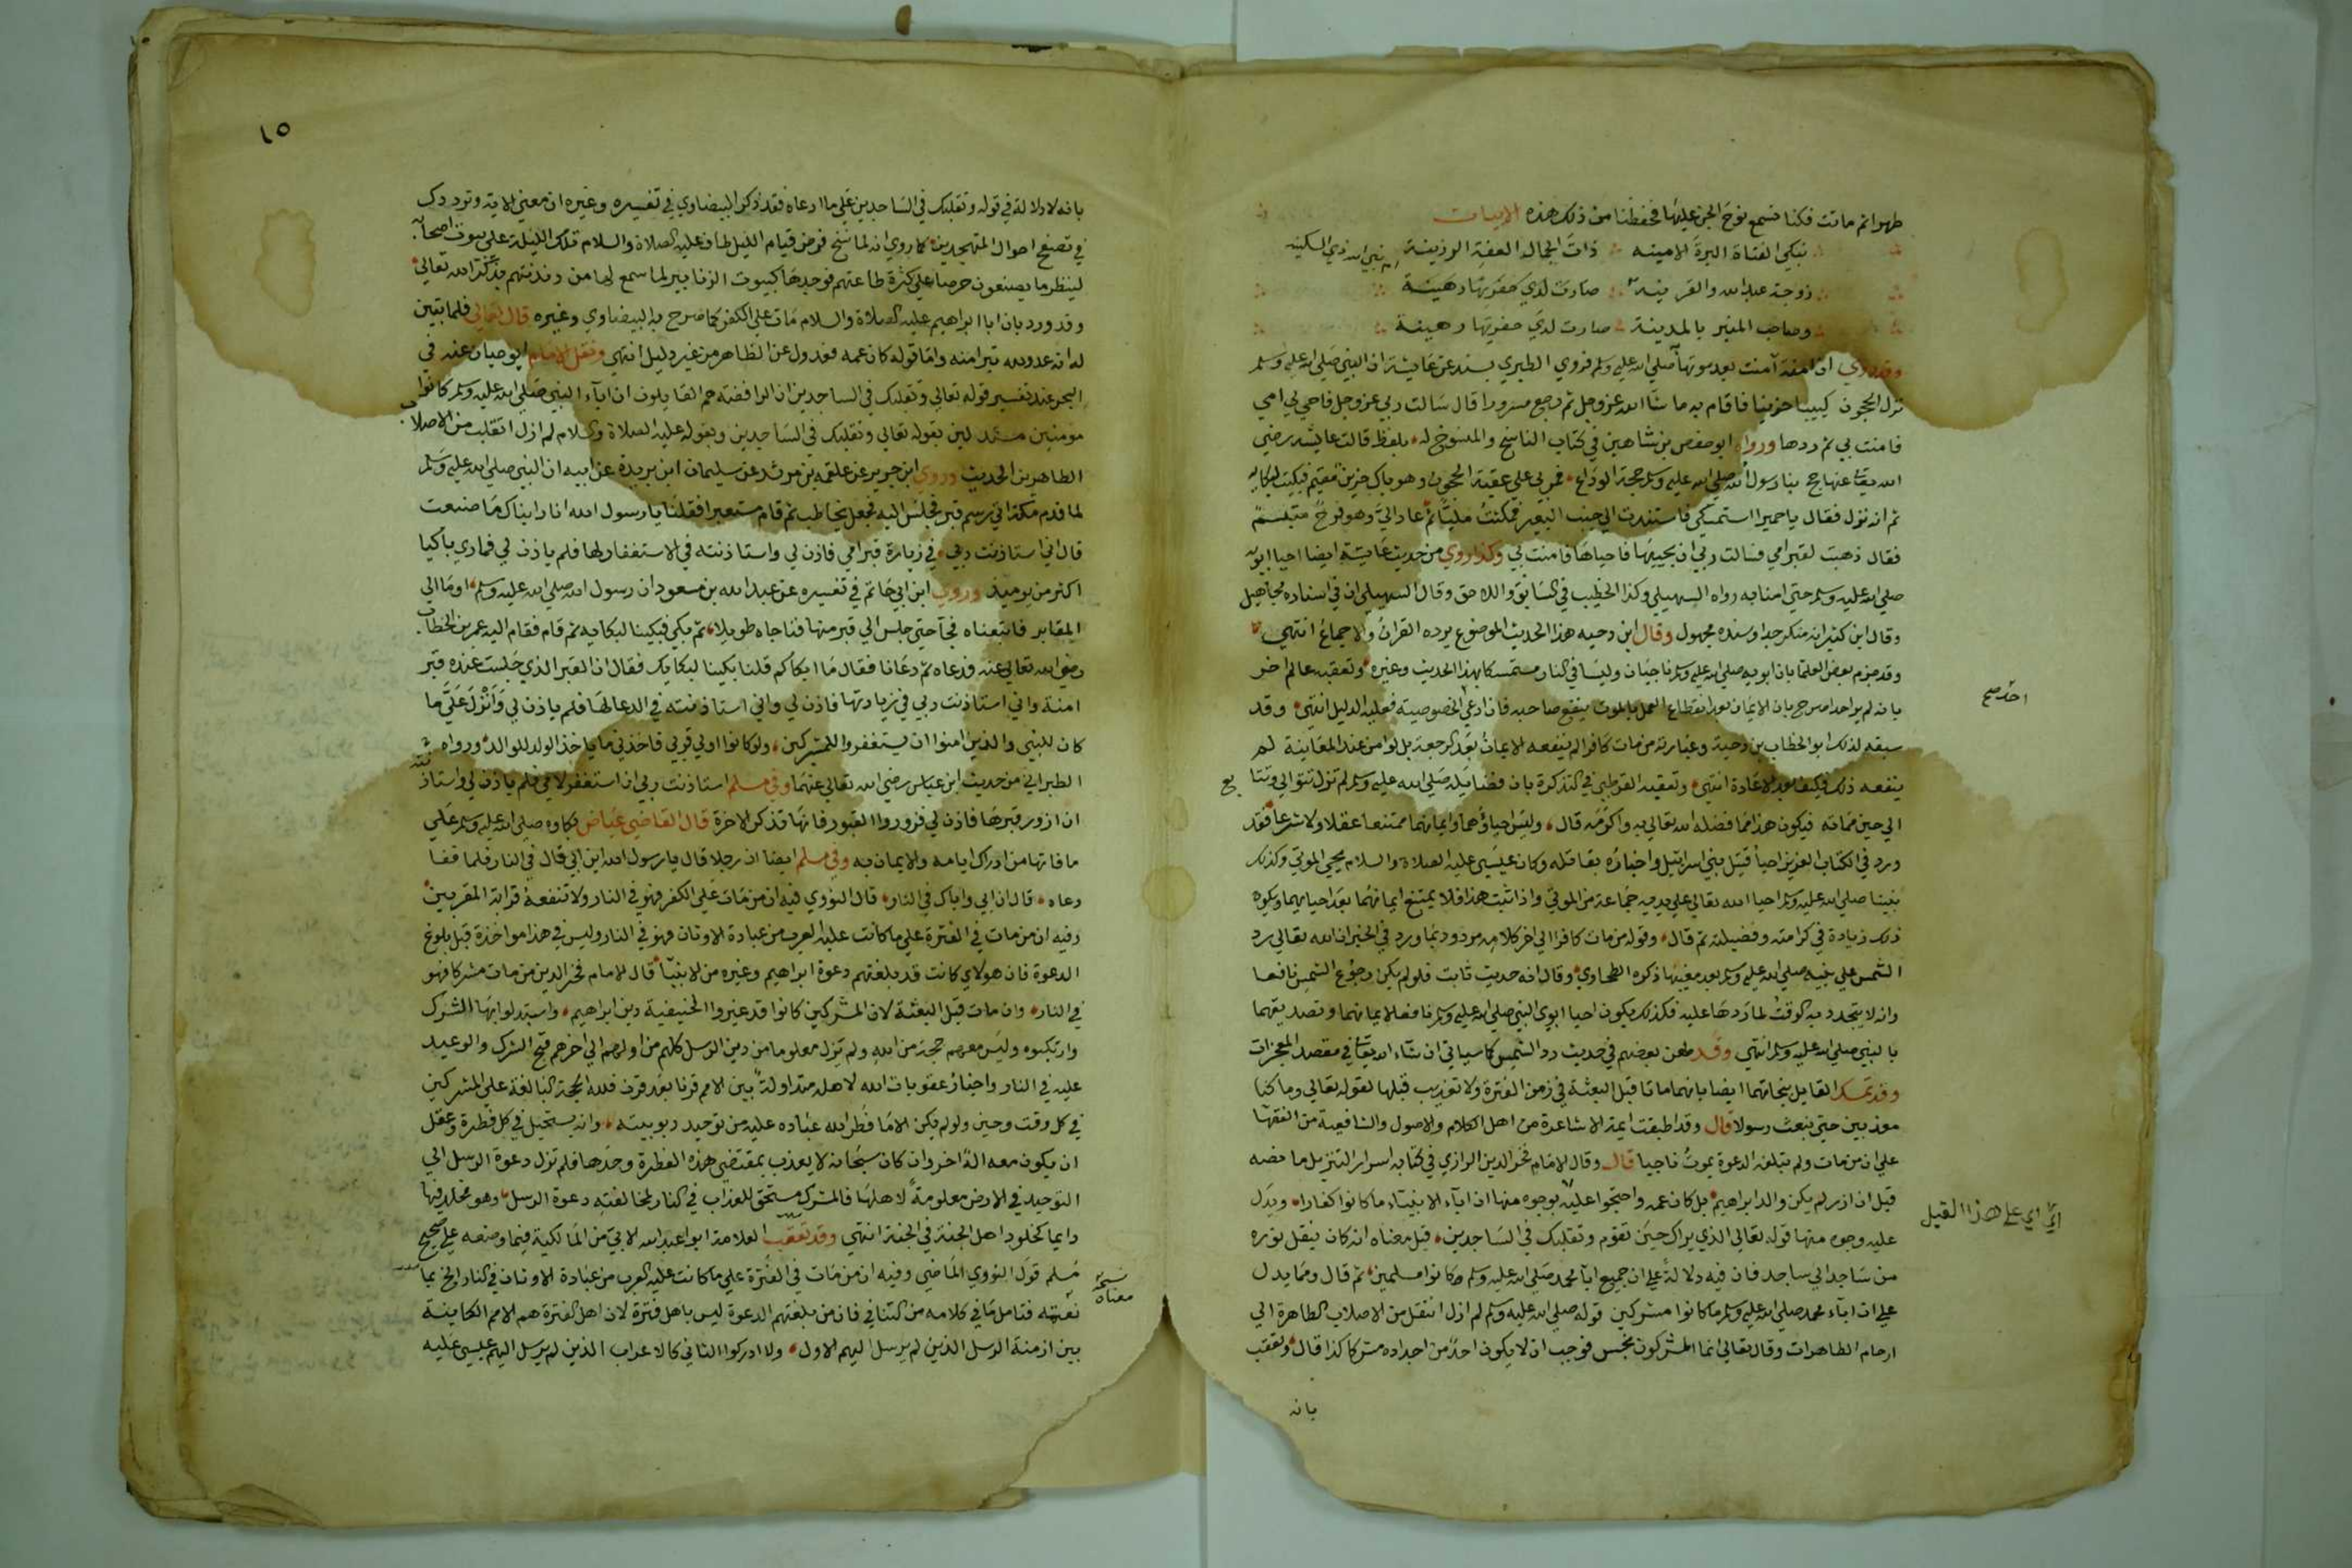 طهوا ثم ماتت فكنا نسمع نوح الجن عليها فحفظنا من ذلك هذه الابيات
نبكي الفتاة البرة الامينه ذات الجمال العفة الرزينة
زوجة عبدالله والقرينه ام نبي الله ذي السكينه
وصاحب المنبر بالمدينة صارت لدي حفرتها رهينة
وقد روي ان امنة آمنت بعد موتها صلى الله عليه وسلم فروي الطبري بسند عن عايشة ان النبي صلى الله عليه وسلم
نزل الحجون كييبا حزينا فاقام به ما شا الله عز وجل ثم رجع مسرورا قال سالت ربي عز وجل فاحي لي امي
فامنت بي ثم ردها ورواه ابو حفص بن شاهين في كتاب الناسخ والمنسوخ له بلفظ قالت عايشه رضي
الله تعا عنها حج بنا رسول الله صلى الله عليه وسلم حجة الوداع فمر بي على عقبة الحجون وهو باك حزين مغتم فبكيت لبكايه
ثم انه نزل فقال يا حميرا استمسكي فاستندت الي جنب البعير فمكثت مليا ثم عاد الي وهو فرح متبسم
فقال ذهبت لقبر امي فسالت ربي ان يحييها فاحياها فامنت بي وكذا روي من حديث عايشة ايضا احيا ابويه
صلى الله عليه وسلم حتى امنا به رواه السهيلي وكذا الخطيب في السابق واللاحق وقال السهيلي ان في اسناده مجاهيل
وقال ابن كثير انه منكر جدا وسنده مجهول وقال ابن دحيه هذا الحديث الموضوع يرده القران والاجماع انتهي
وقد جزم بعض العلما بان ابويه صلى الله عليه وسلم ناجيان وليسا في النار متمسكا بهذا الحديث وغيره وتعقبه عالم اخر
بانه لم ير احدا صرح بان الايمان بعد انقطاع العمل بالموت ينفع صاحبه فان ادعي الخصوصية فعليه الدليل انتهي وقد
سبقه لذلك ابو الخطاب بن دحية وعبارته من مات كافرا لم ينفعه الايمان بعد الرجعة بل لو امن عند المعاينة لم
ينفعه ذلك فكيف بعد الاعادة انتهي وتعقبه القرطبي في التذكرة بان فضايله صلى الله عليه وسلم لم تزل تتوالي وتتا
بع
الي حين مماته فيكون هذا مما فضله الله تعالي به واكرمه قال وليس احياوهما وايمانهما ممتنعا عقلا ولا شرعا فقد
ورد في الكتاب العزيز احيا قتيل بني اسرايل واخباره بقاتله وكان عيسى عليه الصلاة والسلام يحيي الموتي وكذلك
نبينا صلى الله عليه وسلم احيا الله تعالي علي يديه جماعة من الموتي واذا ثبت هذا فلا يمتنع ايمانهما بعد احيايهما ويكون
ذلك زيادة في كرامته وفضيلته ثم قال وقوله من مات كافرا الي اخر كلامه مردود بما ورد في الخبر ان الله تعالي رد
الشمس علي نبيه صلى الله عليه وسلم بعد مغيبها ذكره الطحاوي وقال انه حديث ثابت فلو لم يكن رجوع الشمس نافعا
وانه لا يتجدد به الوقت لما ردها عليه فكذلك يكون احيا ابوي النبي صلى الله عليه وسلم نافعا لايمانهما وتصديقهما
بالنبي صلى الله عليه وسلم انتهي وقد طعن بعضهم في حديث رد الشمس كما سياتي ان شاء الله تعا في مقصد المعجزات
وقد تمسك القايل بنجاتهما ايضا بانهما ماتا قبل البعثة في زمن الفترة ولا تعذيب قبلها لقوله تعالي وما كنا
معذبين حتى نبعث رسولا قال وقد اطبقت ايمة الاشاعرة من اهل الكلام والاصول والشافعية من الفقها
علي ان من مات ولم تبلغه الدعوة يموت ناجيا قال وقال الامام فخر الدين الرازي في كتابه اسرار التنزيل ما نصه
قيل ان ازر لم يكن والد ابراهيم بل كان عمه واحتجوا عليه بوجوه منها ان اباء الانبياء ما كانوا كفارا ويدل
عليه وجوه منها قوله تعالي الذي يراك حين تقوم وتقلبك في الساجدين قيل معناه انه كان ينقل نوره
من ساجد الي ساجد فان فيه دلالة علي ان جميع ابا محمد صلى الله عليه وسلم كانوا مسلمين ثم قال ومما يدل
علي ان اباء محمد صلى الله عليه وسلم ما كانوا مشركين قوله صلى الله عليه وسلم لم ازل انتقل من الاصلاب الطاهرة الي
ارحام الطاهرات وقال تعالي انما المشركون نجس فوجب ان لا يكون احد من اجداده مشركا كذا قال وتعقب
بانه
احد صح
اي علي هذا القيل
١٥
بانه لا دلالة في قوله وتقلبك في الساجدين علي ما ادعاه فقد ذكر البيضاوي في تفسيره وغيره ان معني الاية وترددك
في تصفح احوال المتهجدين كما روي انه لما نسخ فرض قيام الليل طاف عليه الصلاة والسلام تلك الليلة علي بيوت اصحابه
لينظر ما يصنعون حرصا علي كثرة طاعتهم فوجدها كبيوت الزنابير لما سمع لها من دندنتهم بذكر الله تعالي
وقد ورد بان ابا ابراهيم عليه الصلاة والسلام مات علي الكفر كما صرح به البيضاوي وغيره قال تعالي فلما تبين
له انه عدو لله تبرا منه واما قوله كان عمه فعدول عن الظاهر من غير دليل انتهي ونقل الامام ابو حيان عنه في
البحر عند تفسير قوله تعالي وتقلبك في الساجدين ان الرافضة هم القايلون ان اباء النبي صلى الله عليه وسلم كانوا
مومنين مستدلين بقوله تعالي وتقلبك في الساجدين وبقوله عليه الصلاة والسلام لم ازل انقلب من الاصلاب
الطاهرين الحديث وروي ابن جرير عن علقمه بن مرثد عن سليمان ابن بريدة عن ابيه ان النبي صلى الله عليه وسلم
لما قدم مكة اتي رسم قبر فجلس اليه فجعل يخاطب ثم قام مستعبرا فقلنا يا رسول الله انا راينا ك ما صنعت
قال اني استاذنت ربي في زيارة قبر امي فاذن لي واستاذنته في الاستغفار لها فلم ياذن لي فما ري باكيا
اكثر من يوميذ وروي ابن ابي حاتم في تفسيره عن عبدالله بن مسعود ان رسول الله صلى الله عليه وسلم اوما الي
المقابر فاتبعناه فجا حتى جلس الي قبر منها فناجاه طويلا ثم بكي فبكينا لبكايه ثم قام فقام اليه عمر بن الخطاب
رضي الله تعالي عنه فدعاه ثم دعانا فقال ما ابكاكم قلنا بكينا لبكايك فقال ان القبر الذي جلست عنده قبر
امنة واني استاذنت ربي في زيارتها فاذن لي واني استاذنته في الدعا لها فلم ياذن لي وانزل علي ما
كان للنبي والذين امنوا ان يستغفروا للمشركين ولو كانوا اولي قربي فاخذني ما ياخذ الولد للوالد ورواه
الطبراني من حديث ابن عباس رضي الله تعالي عنهما وفي مسلم استاذنت ربي ان استغفر لامي فلم ياذن لي واستاذ
نته
ان ازور قبرها فاذن لي فزوروا القبور فانها تذكر الاخرة قال القاضي عياض بكاوه صلى الله عليه وسلم علي
ما فاتها من ادراك ايامه والايمان به وفي مسلم ايضا ان رجلا قال يا رسول الله اين ابي قال في النار فلما قفا
دعاه قال ان ابي واباك في النار قال النووي فيه ان من مات علي الكفر فهو في النار ولا تنفعه قرابة المقربين
وفيه ان من مات في الفترة علي ما كانت عليه العرب من عبادة الاوثان فهو في النار وليس في هذا مواخذة قبل بلوغ
الدعوة فان هولاي كانت قد بلغتهم دعوة ابراهيم وغيره من الانبيا قال الامام فخر الدين من مات مشركا فهو
في النار وان مات قبل البعثة لان المشركين كانوا قد غيروا الحنيفية دين ابراهيم واستبدلوا بها الشرك
وارتكبوه وليس معهم حجة من الله ولم يزل معلوما من دين الرسل كلهم من اولهم الي اخرهم قبح الشرك والوعيد
عليه في النار واخبار عقوبات الله لاهله متداولة بين الامم قرنا بعد قرن فلله الحجة البالغة علي المشركين
في كل وقت وحين ولو لم يكن الا ما فطر الله عباده عليه من توحيد ربوبيته وانه يستحيل في كل فطرة وعقل
ان يكون معه اله اخر وان كان سبحانه لا يعذب بمقتضي هذه الفطرة وحدها فلم تزل دعوة الرسل الي
التوحيد في الارض معلومة لاهلها فالمشرك مستحق للعذاب في النار لمخالفته دعوة الرسل وهو مخلد فيها
دايما كخلود اهل الجنة في الجنة انتهي وقد تعقب العلامة ابو عبدالله الابي من المالكية فيما وضعه علي صحيح
مسلم قول النووي الماضي وفيه ان من مات في الفترة علي ما كانت عليه العرب من عبادة الاوثان في النار الخ بما
نصه فتامل ما في كلامه من التنافي فان من بلغتهم الدعوة ليس باهل فترة لان اهل الفترة هم الامم الكاينة
بين ازمنة الرسل الذين لم يرسل اليهم الاول ولا ادركوا الثاني كالاعراب الذين لم يرسل اليهم عيسى عليه
نسخه
معناه